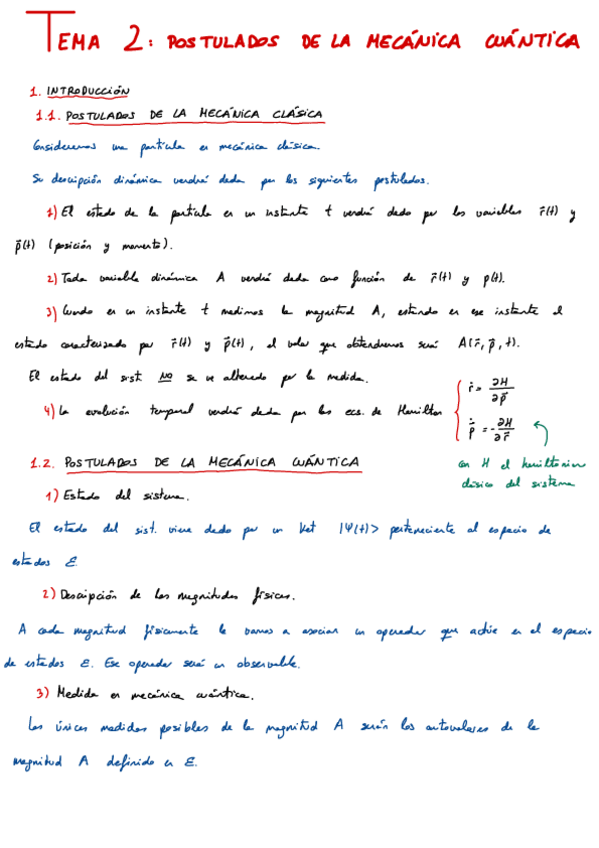 TEMA 2: POSTULADOS DE LA MECÁNICA CUÁNTICA
1. INTRODUCCIÓN
1.1. POSTULADOS DE LA MECÁNICA CLÁSICA
Consideremos una partícula en mecánica clásica.
Su descripción dinámica vendrá dada por los siguientes postulados.
1) El estado de la partícula en un instante t vendrá dado por las variables r⃗(t) y
p⃗(t) (posición y momento).
2) Toda variable dinámica A vendrá dada como función de r⃗(t) y p(t).
3) Cuando en un instante t medimos la magnitud A, estando en ese instante el
estado caracterizado por r⃗(t) y p⃗(t), el valor que obtendremos será A(r⃗, p⃗, t).
El estado del sist. NO se ve alterado por la medida.
4) La evolución temporal vendrá dada por las ecs. de Hamilton { ṙ = ∂H/∂p⃗
ṗ = -∂H/∂r⃗
con H el hamiltoniano
clásico del sistema
1.2. POSTULADOS DE LA MECÁNICA CUÁNTICA
1) Estado del sistema.
El estado del sist. viene dado por un ket |Ψ(t)> perteneciente al espacio de
estados ε
2) Descripción de las magnitudes físicas.
A cada magnitud físicamente le vamos a asociar un operador que actúe en el espacio
de estados ε. Ese operador será un observable.
3) Medida en mecánica cuántica.
Las únicas medidas posibles de la magnitud A serán los autovalores de la
magnitud A definido en ε.